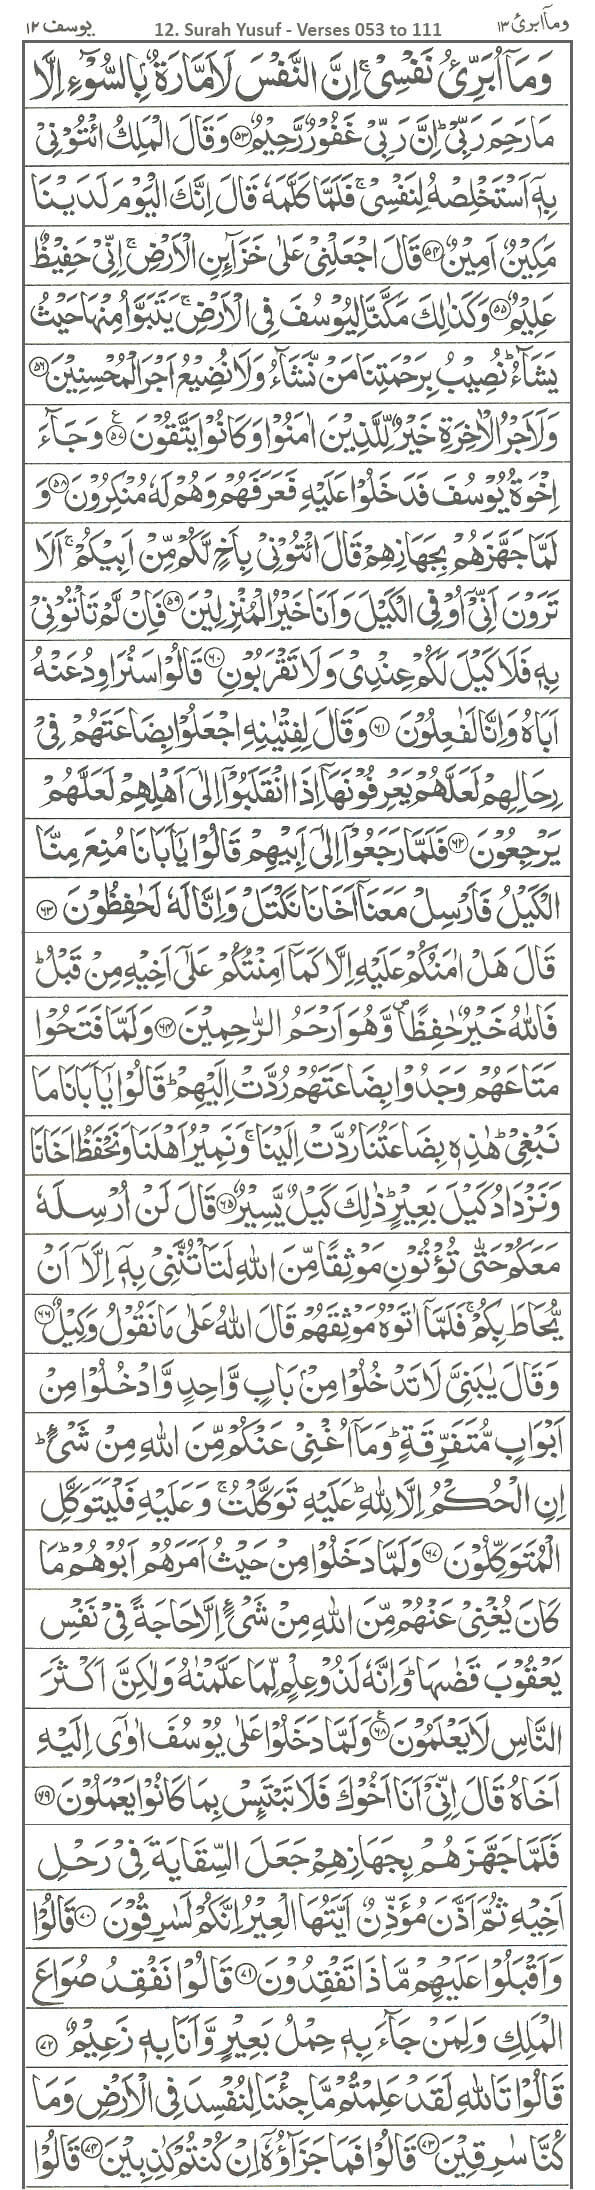 يوسف ١٢ 12. Surah Yusuf - Verses 053 to 111 وما ابرئ ١٣
وَمَاۤ اُبَرِّئُ نَفْسِىْ ۚ اِنَّ النَّفْسَ لَاَمَّارَةٌۢ بِالسُّوْٓءِ اِلَّا
مَا رَحِمَ رَبِّىْ ؕ اِنَّ رَبِّىْ غَفُوْرٌ رَّحِيْمٌ ﴿۵۳﴾ وَقَالَ الْمَلِكُ ائْتُوْنِىْ
بِهٖۤ اَسْتَخْلِصْهُ لِنَفْسِىْ ۚ فَلَمَّا كَلَّمَهٗ قَالَ اِنَّكَ الْيَوْمَ لَدَيْنَا
مَكِيْنٌ اَمِيْنٌ ﴿۵۴﴾ قَالَ اجْعَلْنِىْ عَلٰى خَزَآٮِٕنِ الْاَرْضِ ۚ اِنِّىْ حَفِيْظٌ
عَلِيْمٌ ﴿۵۵﴾ وَكَذٰلِكَ مَكَّنَّا لِيُوْسُفَ فِى الْاَرْضِ ۚ يَتَبَوَّاُ مِنْهَا حَيْثُ
يَشَآءُ ؕ نُصِيْبُ بِرَحْمَتِنَا مَنْ نَّشَآءُ وَلَا نُضِيْعُ اَجْرَ الْمُحْسِنِيْنَ ﴿۵۶﴾
وَلَاَجْرُ الْاٰخِرَةِ خَيْرٌ لِّلَّذِيْنَ اٰمَنُوْا وَكَانُوْا يَتَّقُوْنَ ﴿۵۷﴾ ع وَجَآءَ
اِخْوَةُ يُوْسُفَ فَدَخَلُوْا عَلَيْهِ فَعَرَفَهُمْ وَهُمْ لَهٗ مُنْكِرُوْنَ ﴿۵۸﴾ وَ
لَمَّا جَهَّزَهُمْ بِجَهَازِهِمْ قَالَ ائْتُوْنِىْ بِاَخٍ لَّكُمْ مِّنْ اَبِيْكُمْ ۚ اَلَا
تَرَوْنَ اَنِّىْۤ اُوْفِى الْكَيْلَ وَاَنَا خَيْرُ الْمُنْزِلِيْنَ ﴿۵۹﴾ فَاِنْ لَّمْ تَاْتُوْنِىْ
بِهٖ فَلَا كَيْلَ لَكُمْ عِنْدِىْ وَلَا تَقْرَبُوْنِ ﴿۶۰﴾ قَالُوْا سَنُرَاوِدُ عَنْهُ
اَبَاهُ وَاِنَّا لَفٰعِلُوْنَ ﴿۶۱﴾ وَقَالَ لِفِتْيٰنِهِ اجْعَلُوْا بِضَاعَتَهُمْ فِىْ
رِحَالِهِمْ لَعَلَّهُمْ يَعْرِفُوْنَهَاۤ اِذَا انْقَلَبُوْۤا اِلٰٓى اَهْلِهِمْ لَعَلَّهُمْ
يَرْجِعُوْنَ ﴿۶۲﴾ فَلَمَّا رَجَعُوْۤا اِلٰٓى اَبِيْهِمْ قَالُوْا يٰۤاَبَانَا مُنِعَ مِنَّا
الْكَيْلُ فَاَرْسِلْ مَعَنَاۤ اَخَانَا نَكْتَلْ وَاِنَّا لَهٗ لَحٰفِظُوْنَ ﴿۶۳﴾
قَالَ هَلْ اٰمَنُكُمْ عَلَيْهِ اِلَّا كَمَاۤ اَمِنْتُكُمْ عَلٰٓى اَخِيْهِ مِنْ قَبْلُ ؕ
فَاللّٰهُ خَيْرٌ حٰفِظًا ۖ وَّهُوَ اَرْحَمُ الرّٰحِمِيْنَ ﴿۶۴﴾ وَلَمَّا فَتَحُوْا
مَتَاعَهُمْ وَجَدُوْا بِضَاعَتَهُمْ رُدَّتْ اِلَيْهِمْ ؕ قَالُوْا يٰۤاَبَانَا مَا
نَبْغِىْ ؕ هٰذِهٖ بِضَاعَتُنَا رُدَّتْ اِلَيْنَا ۚ وَنَمِيْرُ اَهْلَنَا وَنَحْفَظُ اَخَانَا
وَنَزْدَادُ كَيْلَ بَعِيْرٍ ؕ ذٰلِكَ كَيْلٌ يَّسِيْرٌ ﴿۶۵﴾ قَالَ لَنْ اُرْسِلَهٗ
مَعَكُمْ حَتّٰى تُؤْتُوْنِ مَوْثِقًا مِّنَ اللّٰهِ لَتَاْتُنَّنِىْ بِهٖۤ اِلَّاۤ اَنْ
يُّحَاطَ بِكُمْ ۚ فَلَمَّاۤ اٰتَوْهُ مَوْثِقَهُمْ قَالَ اللّٰهُ عَلٰى مَا نَقُوْلُ وَكِيْلٌ ﴿۶۶﴾
وَقَالَ يٰبَنِىَّ لَا تَدْخُلُوْا مِنْۢ بَابٍ وَّاحِدٍ وَّادْخُلُوْا مِنْ
اَبْوَابٍ مُّتَفَرِّقَةٍ ؕ وَمَاۤ اُغْنِىْ عَنْكُمْ مِّنَ اللّٰهِ مِنْ شَىْءٍ ؕ
اِنِ الْحُكْمُ اِلَّا لِلّٰهِ ؕ عَلَيْهِ تَوَكَّلْتُ ۚ وَعَلَيْهِ فَلْيَتَوَكَّلِ
الْمُتَوَكِّلُوْنَ ﴿۶۷﴾ وَلَمَّا دَخَلُوْا مِنْ حَيْثُ اَمَرَهُمْ اَبُوْهُمْ ؕ مَا
كَانَ يُغْنِىْ عَنْهُمْ مِّنَ اللّٰهِ مِنْ شَىْءٍ اِلَّا حَاجَةً فِىْ نَفْسِ
يَعْقُوْبَ قَضٰٮهَا ؕ وَاِنَّهٗ لَذُوْ عِلْمٍ لِّمَا عَلَّمْنٰهُ وَلٰكِنَّ اَكْثَرَ
النَّاسِ لَا يَعْلَمُوْنَ ﴿۶۸﴾ ع وَلَمَّا دَخَلُوْا عَلٰى يُوْسُفَ اٰوٰٓى اِلَيْهِ
اَخَاهُ قَالَ اِنِّىْۤ اَنَا اَخُوْكَ فَلَا تَبْتَٮِٕسْ بِمَا كَانُوْا يَعْمَلُوْنَ ﴿۶۹﴾
فَلَمَّا جَهَّزَهُمْ بِجَهَازِهِمْ جَعَلَ السِّقَايَةَ فِىْ رَحْلِ
اَخِيْهِ ثُمَّ اَذَّنَ مُؤَذِّنٌ اَيَّتُهَا الْعِيْرُ اِنَّكُمْ لَسٰرِقُوْنَ ﴿۷۰﴾ قَالُوْا
وَاَقْبَلُوْا عَلَيْهِمْ مَّاذَا تَفْقِدُوْنَ ﴿۷۱﴾ قَالُوْا نَفْقِدُ صُوَاعَ
الْمَلِكِ وَلِمَنْ جَآءَ بِهٖ حِمْلُ بَعِيْرٍ وَّاَنَا بِهٖ زَعِيْمٌ ﴿۷۲﴾
قَالُوْا تَاللّٰهِ لَقَدْ عَلِمْتُمْ مَّا جِئْنَا لِنُفْسِدَ فِى الْاَرْضِ وَمَا
كُنَّا سٰرِقِيْنَ ﴿۷۳﴾ قَالُوْا فَمَا جَزَآؤُهٗۤ اِنْ كُنْتُمْ كٰذِبِيْنَ ﴿۷۴﴾ قَالُوْا